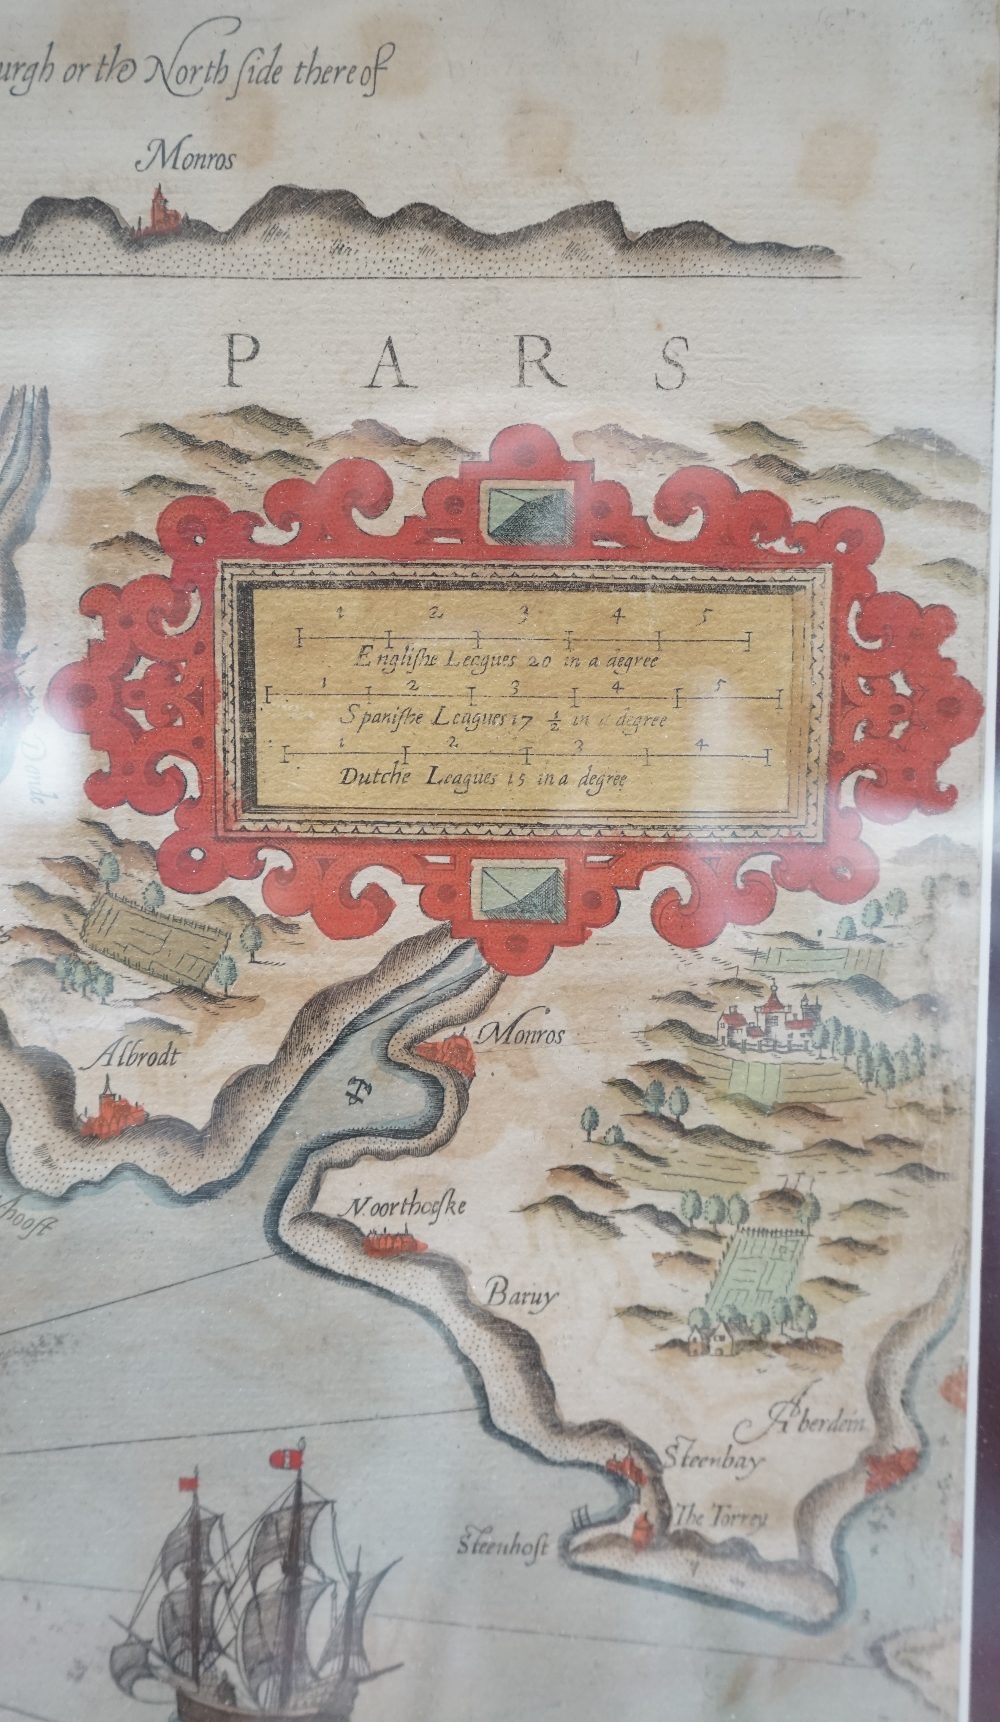 urgh or the North side there of
Monros
P A R S
1 2 3 4 5
Englishe Leagues 20 in a degree
1 2 3 4 5
Spanishe Leagues 17 ½ in a degree
1 2 3 4
Dutche Leagues 15 in a degree
Monros
Albrodt
Noorthceske
hooft
Baruy
Aberdein
Steenbay
The Torrey
Steenhoft